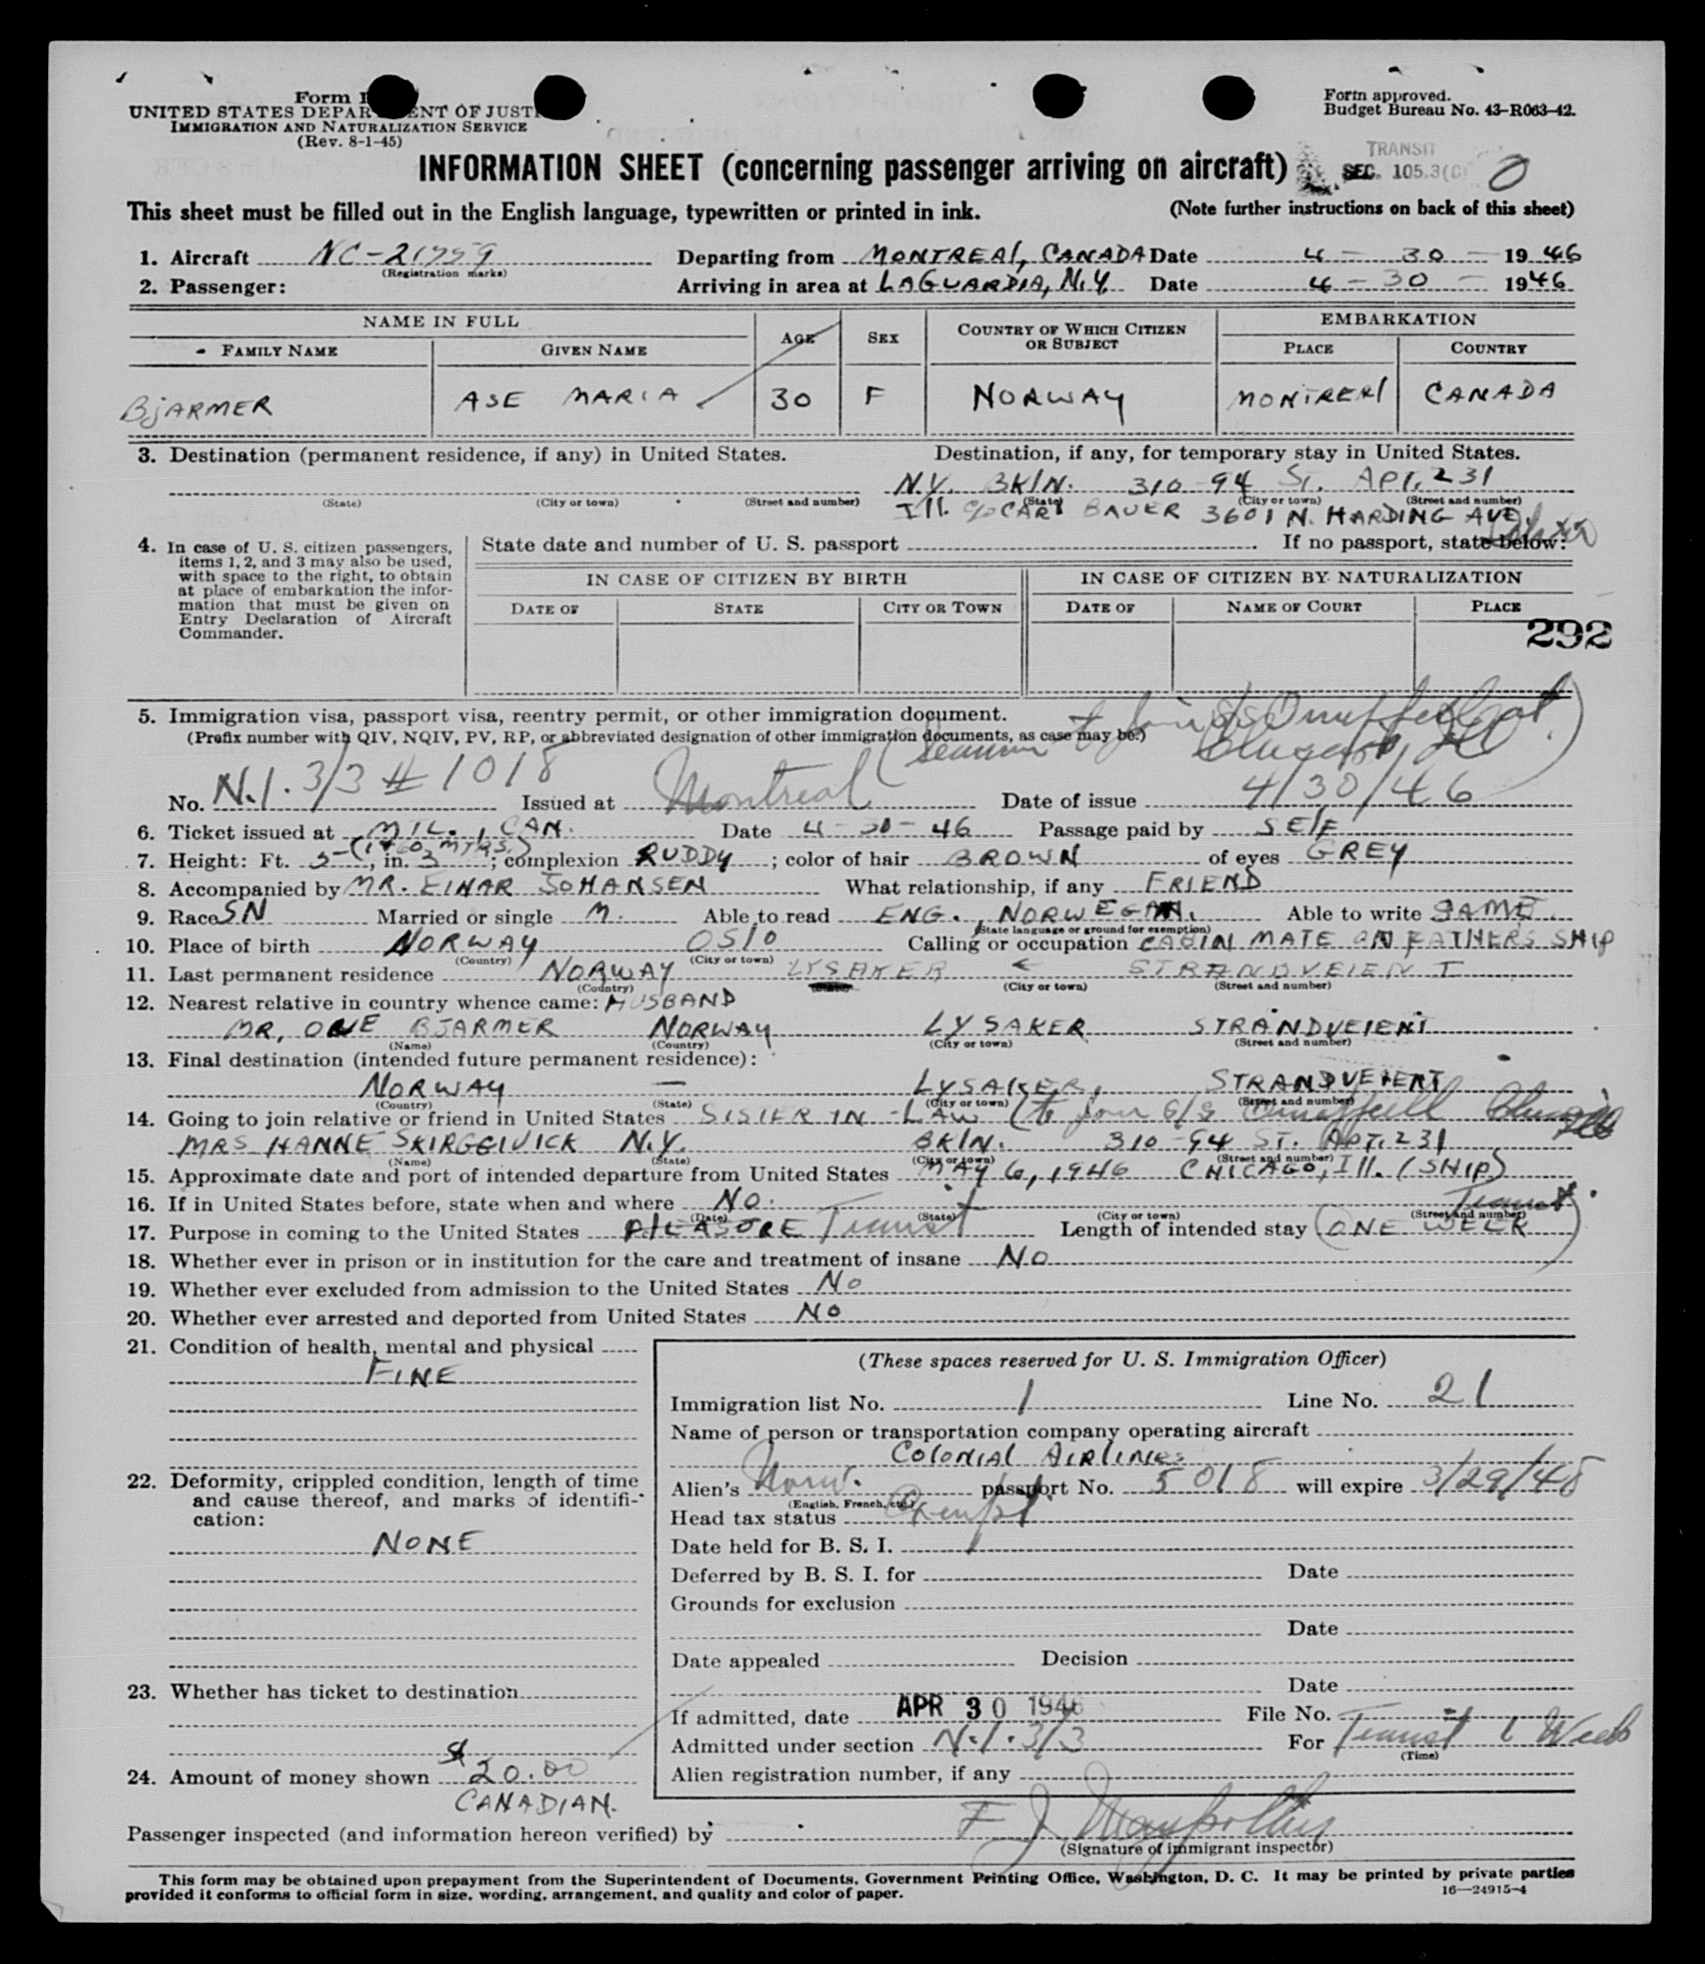 Form I
UNITED STATES DEPARTMENT OF JUSTI
IMMIGRATION AND NATURALIZATION SERVICE
(Rev. 8-1-45)
Form approved.
Budget Bureau No. 43-R063-42.
INFORMATION SHEET (concerning passenger arriving on aircraft)
TRANSIT
SEC. 105.3(C) 0
This sheet must be filled out in the English language, typewritten or printed in ink. (Note further instructions on back of this sheet)
1. Aircraft NC-21759 Departing from MONTREAL, CANADA Date 4 - 30 - 1946
(Registration marks)
2. Passenger: Arriving in area at LAGUARDIA, N.Y. Date 4 - 30 - 1946
NAME IN FULL AGE SEX COUNTRY OF WHICH CITIZEN OR SUBJECT EMBARKATION
FAMILY NAME GIVEN NAME PLACE COUNTRY
BJARMER ASE MARIA 30 F NORWAY MONTREAL CANADA
3. Destination (permanent residence, if any) in United States. Destination, if any, for temporary stay in United States.
N.Y. BKLN. 310-94 ST. APT. 231
(State) (City or town) (Street and number) (State) (City or town) (Street and number)
Ill. c/o CARL BAUER 3601 N. HARDING AVE.
4. In case of U. S. citizen passengers, items 1, 2, and 3 may also be used, with space to the right, to obtain at place of embarkation the information that must be given on Entry Declaration of Aircraft Commander.
State date and number of U. S. passport If no passport, state below:
IN CASE OF CITIZEN BY BIRTH IN CASE OF CITIZEN BY NATURALIZATION
DATE OF STATE CITY OR TOWN DATE OF NAME OF COURT PLACE
292
5. Immigration visa, passport visa, reentry permit, or other immigration document.
(Prefix number with QIV, NQIV, PV, RP, or abbreviated designation of other immigration documents, as case may be.)
(Seaman to join Chicago, Ill.)
No. N.I. 3/3 # 1018 Issued at Montreal Date of issue 4/30/46
6. Ticket issued at MTL., CAN. Date 4-30-46 Passage paid by SELF
7. Height: Ft. 5-(1+60 MTRS.), in. 3; complexion RUDDY; color of hair BROWN of eyes GREY
8. Accompanied by MR. EINAR JOHANSEN What relationship, if any FRIEND
9. Race SN Married or single M. Able to read ENG., NORWEGAN. Able to write SAME
(State language or ground for exemption)
10. Place of birth NORWAY OSLO Calling or occupation CABIN MATE ON FATHERS SHIP
(Country) (City or town)
11. Last permanent residence NORWAY LYSAKER STRANDVEIEN 1
(Country) (City or town) (Street and number)
12. Nearest relative in country whence came: HUSBAND
MR. OLE BJARMER NORWAY LYSAKER STRANDVEIEN 1
(Name) (Country) (City or town) (Street and number)
13. Final destination (intended future permanent residence):
NORWAY — LYSAKER, STRANDVEIEN 1
(Country) (State) (City or town) (Street and number)
14. Going to join relative or friend in United States SISTER IN-LAW (to join S/S
MRS HANNE N.Y. BKLN. 310-94 ST. APT. 231
(Name) (State) (City or town) (Street and number)
15. Approximate date and port of intended departure from United States MAY 6, 1946 CHICAGO, Ill. (SHIP)
16. If in United States before, state when and where NO. Transit
(Date) (State) (City or town) (Street and number)
17. Purpose in coming to the United States PLEASURE Transit Length of intended stay (ONE WEEK)
18. Whether ever in prison or in institution for the care and treatment of insane NO
19. Whether ever excluded from admission to the United States NO
20. Whether ever arrested and deported from United States NO
21. Condition of health, mental and physical
FINE
22. Deformity, crippled condition, length of time and cause thereof, and marks of identification:
NONE
23. Whether has ticket to destination
24. Amount of money shown $20.00
CANADIAN.
(These spaces reserved for U. S. Immigration Officer)
Immigration list No. 1 Line No. 21
Name of person or transportation company operating aircraft
COLONIAL AIRLINES
Alien's Norw. passport No. 5018 will expire 3/29/48
(English, French, etc.)
Head tax status Exempt
Date held for B. S. I.
Deferred by B. S. I. for Date
Grounds for exclusion
Date
Date appealed Decision
Date
If admitted, date APR 30 1946 File No.
Admitted under section N.I. 3/3 For Transit 1 Week
(Time)
Alien registration number, if any
Passenger inspected (and information hereon verified) by F J
(Signature of immigrant inspector)
This form may be obtained upon prepayment from the Superintendent of Documents, Government Printing Office, Washington, D. C. It may be printed by private parties
provided it conforms to official form in size, wording, arrangement, and quality and color of paper.
16—24915-4